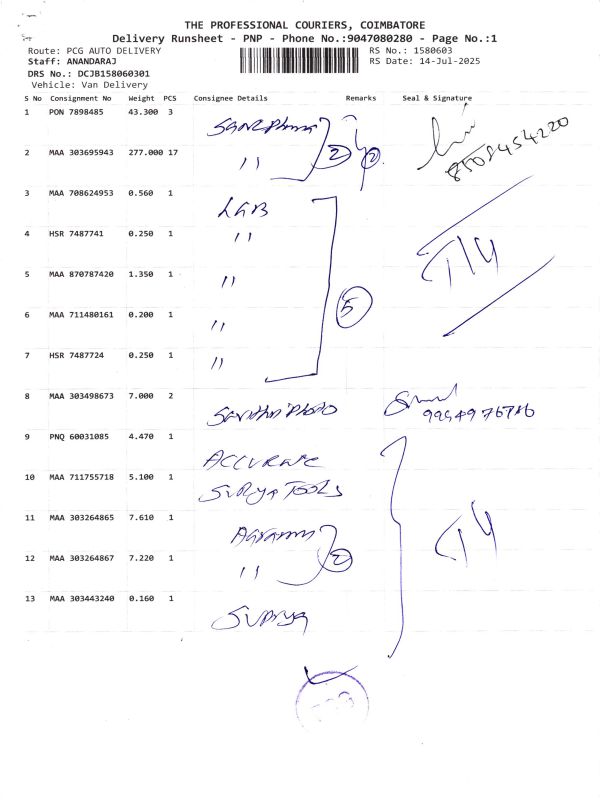 THE PROFESSIONAL COURIERS, COIMBATORE
Delivery Runsheet - PNP - Phone No.:9047080280 - Page No.:1
Route: PCG AUTO DELIVERY
RS No.: 1580603
Staff: ANANDARAJ
RS Date: 14-Jul-2025
DRS No.: DCJB158060301
Vehicle: Van Delivery
S No Consignment No Weight PCS Consignee Details Remarks Seal & Signature
1 PON 7898485 43.300 3
2 MAA 303695943 277.000 17 " 2 2
3 MAA 708624953 0.560 1 LGB
4 HSR 7487741 0.250 1 "
5 MAA 870787420 1.350 1 "
6 MAA 711480161 0.200 1 " 5
7 HSR 7487724 0.250 1 "
8 MAA 303498673 7.000 2
9 PNQ 60031085 4.470 1 ACCURATE
10 MAA 711755718 5.100 1 SURYA TOOLS
11 MAA 303264865 7.610 1
12 MAA 303264867 7.220 1 " 2
13 MAA 303443240 0.160 1 Surya